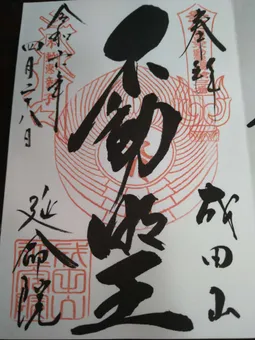 奉拝
成田山
不動明王
令和六年
四月二八日
延命院